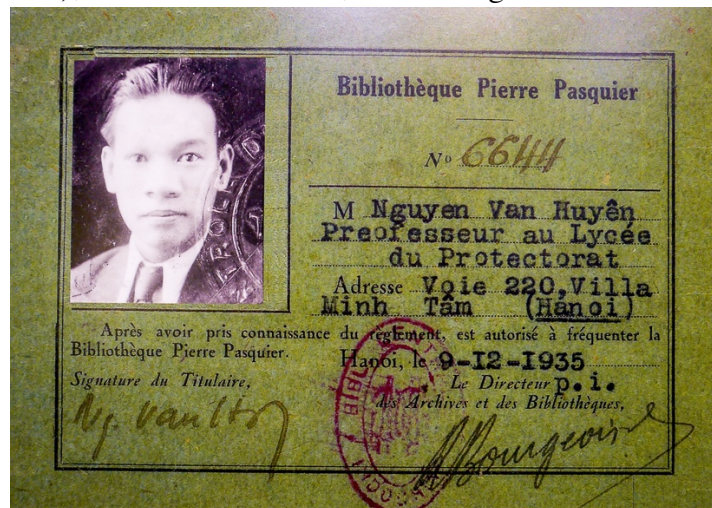 Bibliothèque Pierre Pasquier
No 6644
M Nguyen Van Huyên
Preofesseur au Lycée
du Protectorat
Adresse Voie 220, Villa
Minh Tâm (Hanoi)
Après avoir pris connaissance du règlement, est autorisé à fréquenter la
Bibliothèque Pierre Pasquier.
Hanoi, le 9-12-1935
Signature du Titulaire,
Le Directeur p.i.
des Archives et des Bibliothèques,
Ng. Van
Bourgeois